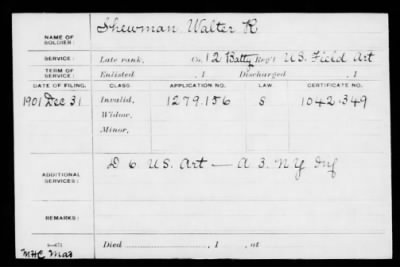 NAME OF SOLDIER: Shewman Walter R
SERVICE: Late rank, Co. 12 Batty Reg't U.S. Field Art
TERM OF SERVICE: Enlisted , 1 Discharged , 1
DATE OF FILING. CLASS APPLICATION NO. LAW. CERTIFICATE NO.
1901 Dec 31 Invalid, 1279.156 S 1042.349
Widow,
Minor,
ADDITIONAL SERVICES: D 6 U.S. Art — A 3. N.Y Inf
REMARKS:
Died , 1 , at
MHC Mas